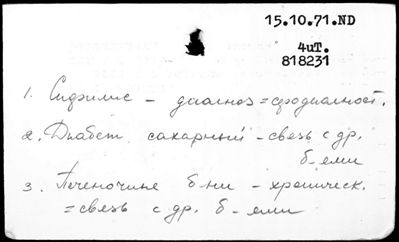 15.10.71.ND
4uT.
818231
1. Сифилис – диагноз =
2. Диабет сахарный – связь с др.
б-ями
3. Печеночные б-ни – хроническ.
= связь с др. б-ями